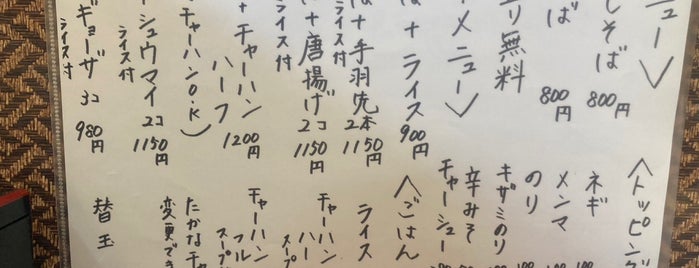 ニュー〉
しそば 800円
ば 800円
リ無料
メニュー〉
ば+ライス 900円
ば+手羽先 2本 1150円
ライス付
ば+唐揚げ 2コ 1150円
ライス付
+チャーハン
ハーフ 1200円
チャーハンO.K)
シュウマイ 2コ 1150円
ライス付
ギョーザ 3コ 980円
ライス付
〈トッピング
ネギ
メンマ
のり
キザミのり
辛みそ
チャーシュー
〈ごはん
ライス
チャーハン
ハー
スープ
チャーハン
フル
スープ
たかなチャ
変更でき
替玉